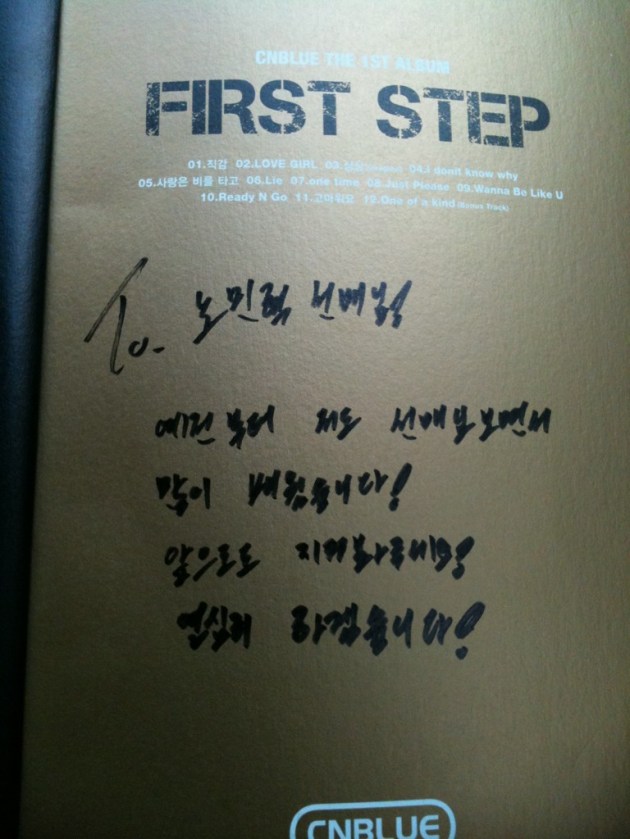 CNBLUE THE 1ST ALBUM
FIRST STEP
01.직감 02.LOVE GIRL 03.상상 04.I don't know why
05.사랑은 비를 타고 06.Lie 07.one time 08.Just Please 09.Wanna Be Like U
10.Ready N Go 11.고마워요 12.One of a kind (Bonus Track)
To. 노민혁 선배님!
예전부터 저도 선배님 보면서
많이 배웠습니다!
앞으로도 지켜봐주세요!
열심히 하겠습니다!
CNBLUE